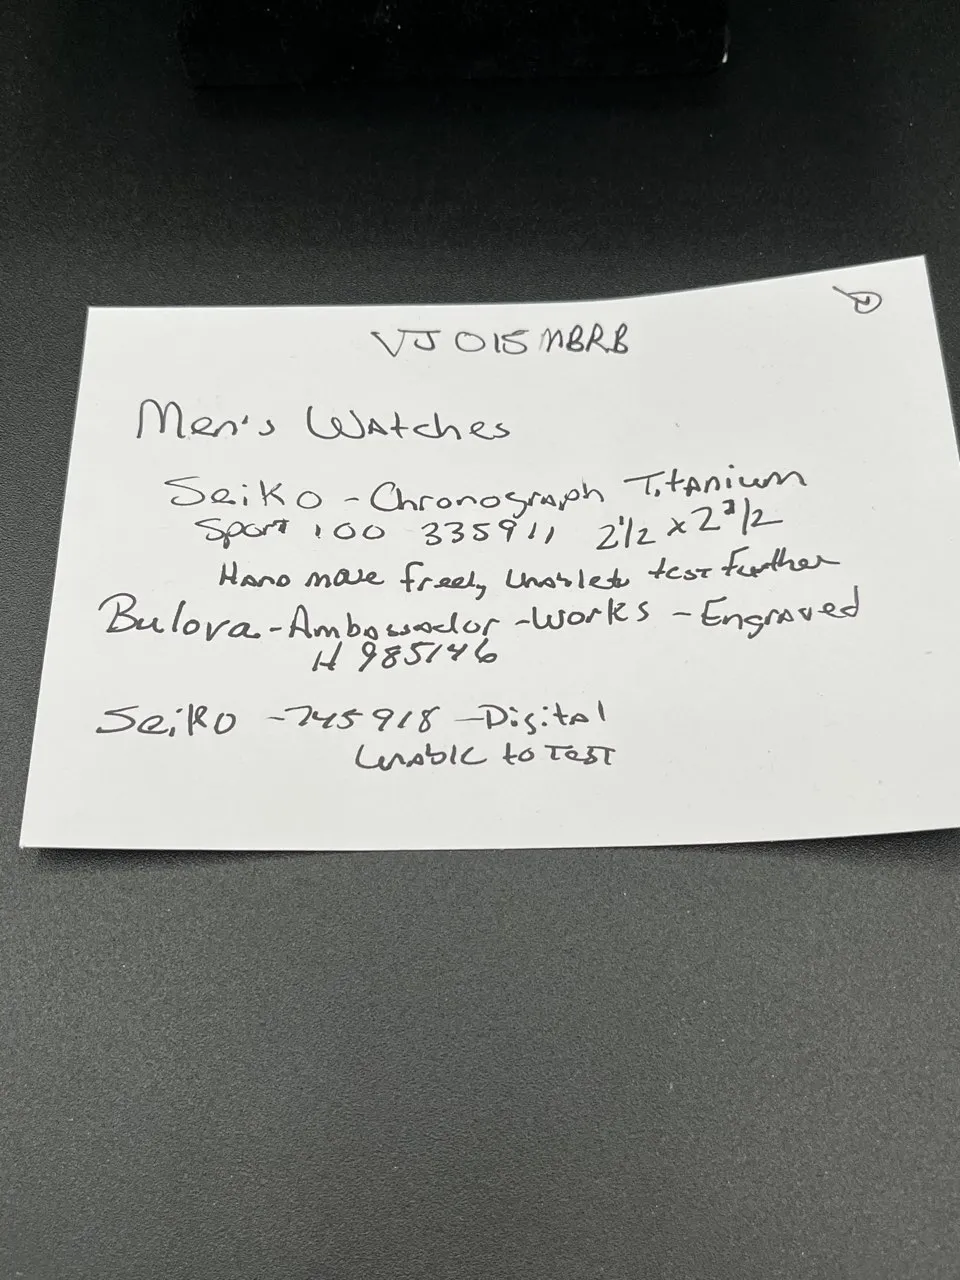 VJ 015 MBRB
Men's Watches
Seiko - Chronograph Titanium
Sport 100 335911 2 1/2 x 2 3/2
Hand move freely Unable to test further
Bulova - Ambassador - Works - Engraved
H 985146
Seiko - 745918 - Digital
Unable to Test